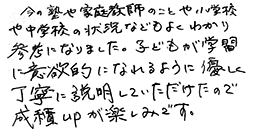 今の塾や家庭教師のことや小学校
や中学校の状況などもよくわかり
参考になりました。子どもが学習
に意欲的になれるように優しく
丁寧に説明していただけたので
成積upが楽しみです。